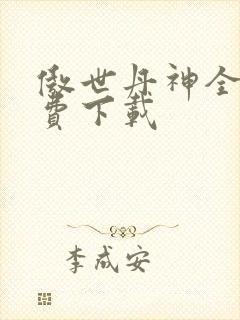 傲世丹神全
费下载
李成安